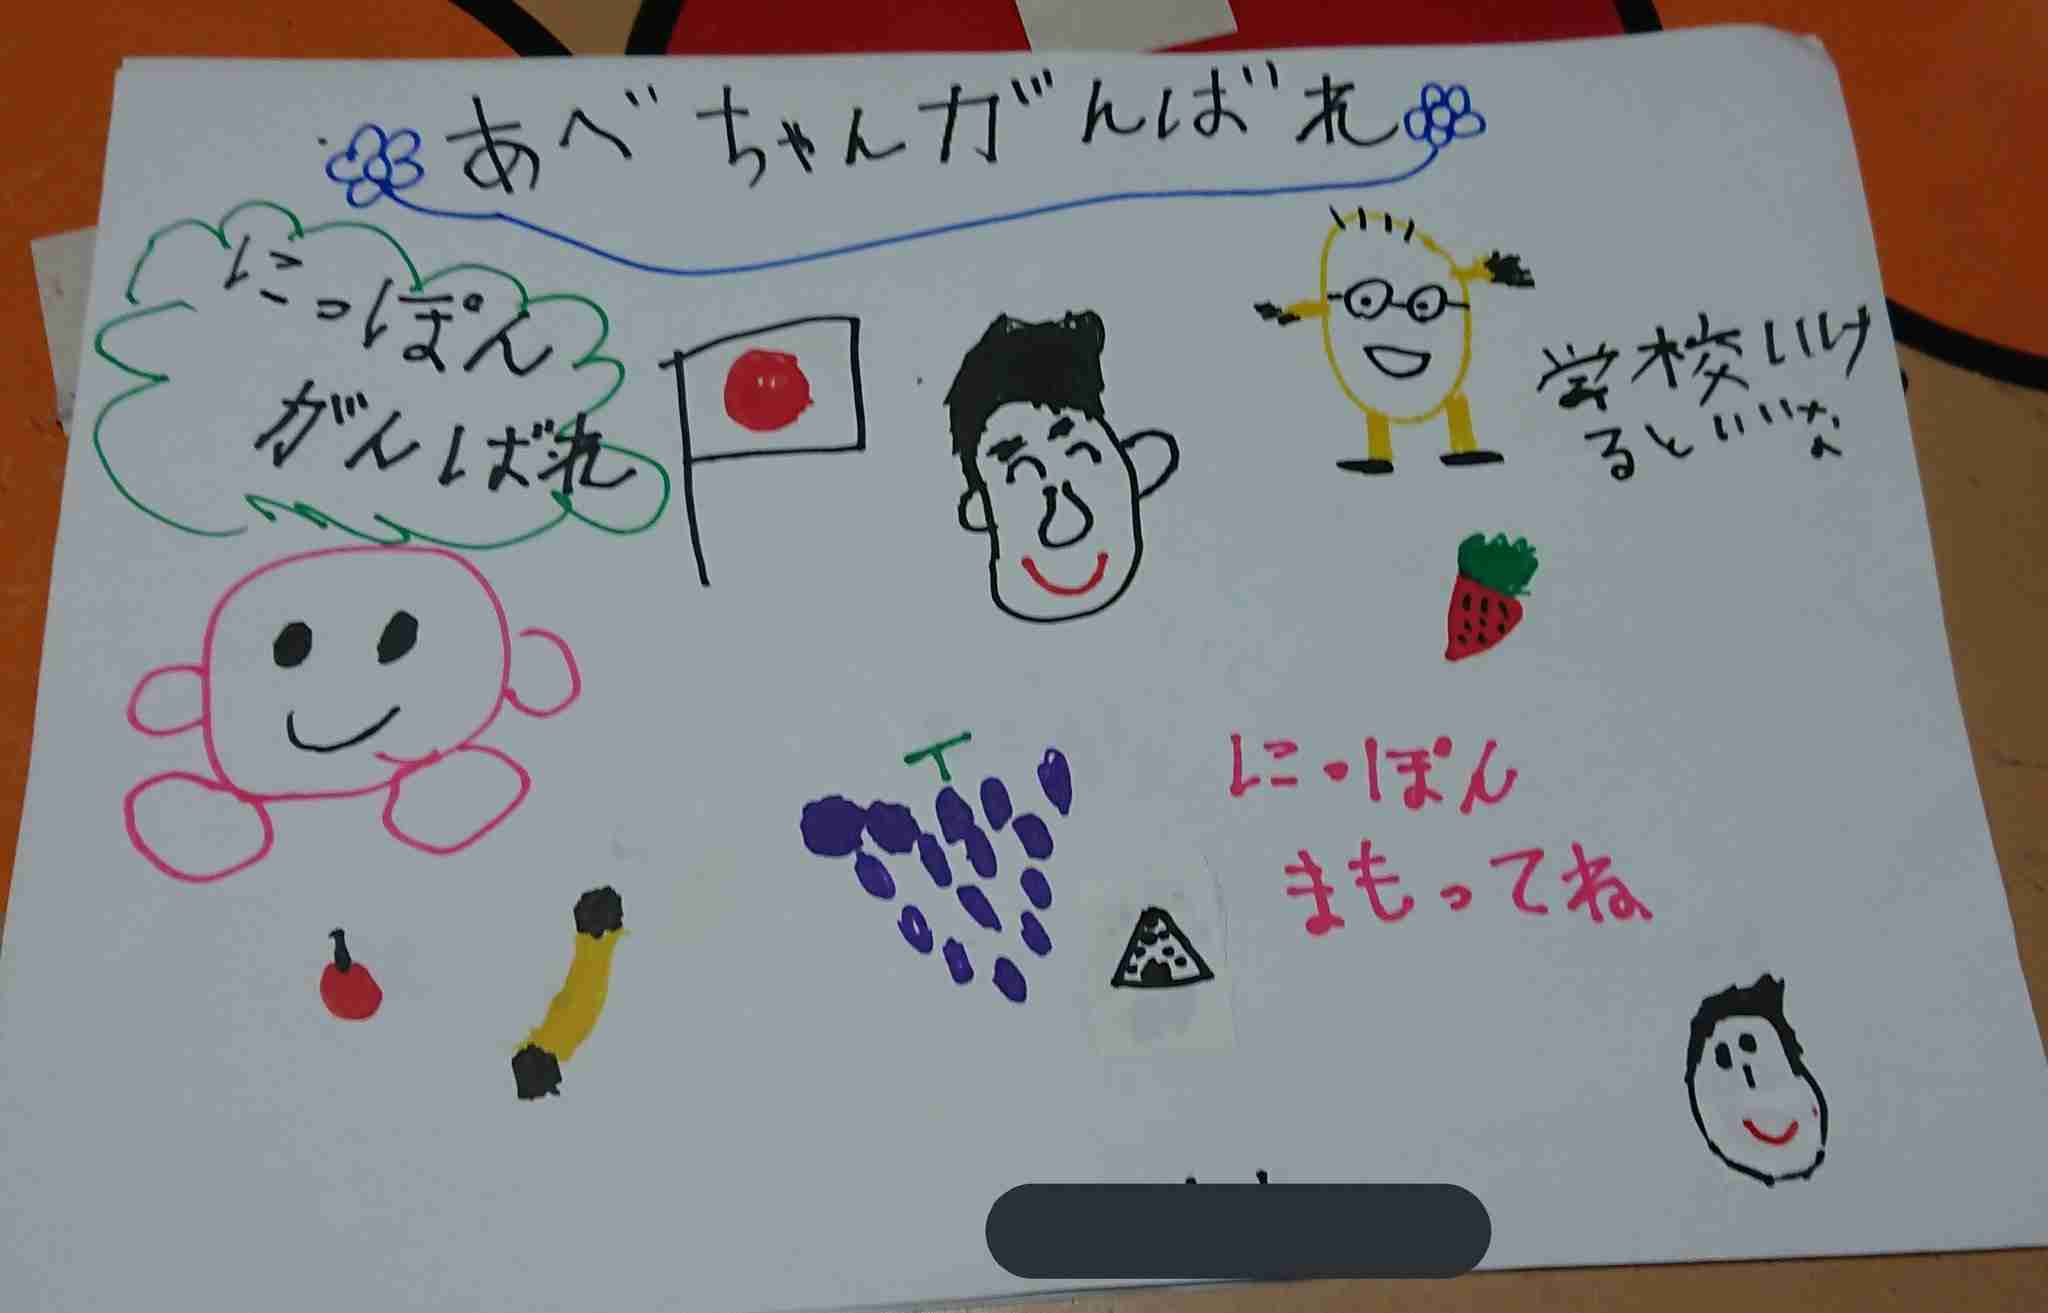 あべちゃんガんばれ
にっぽん
がんばれ
学校いけ
るといいな
にっぽん
まもってね